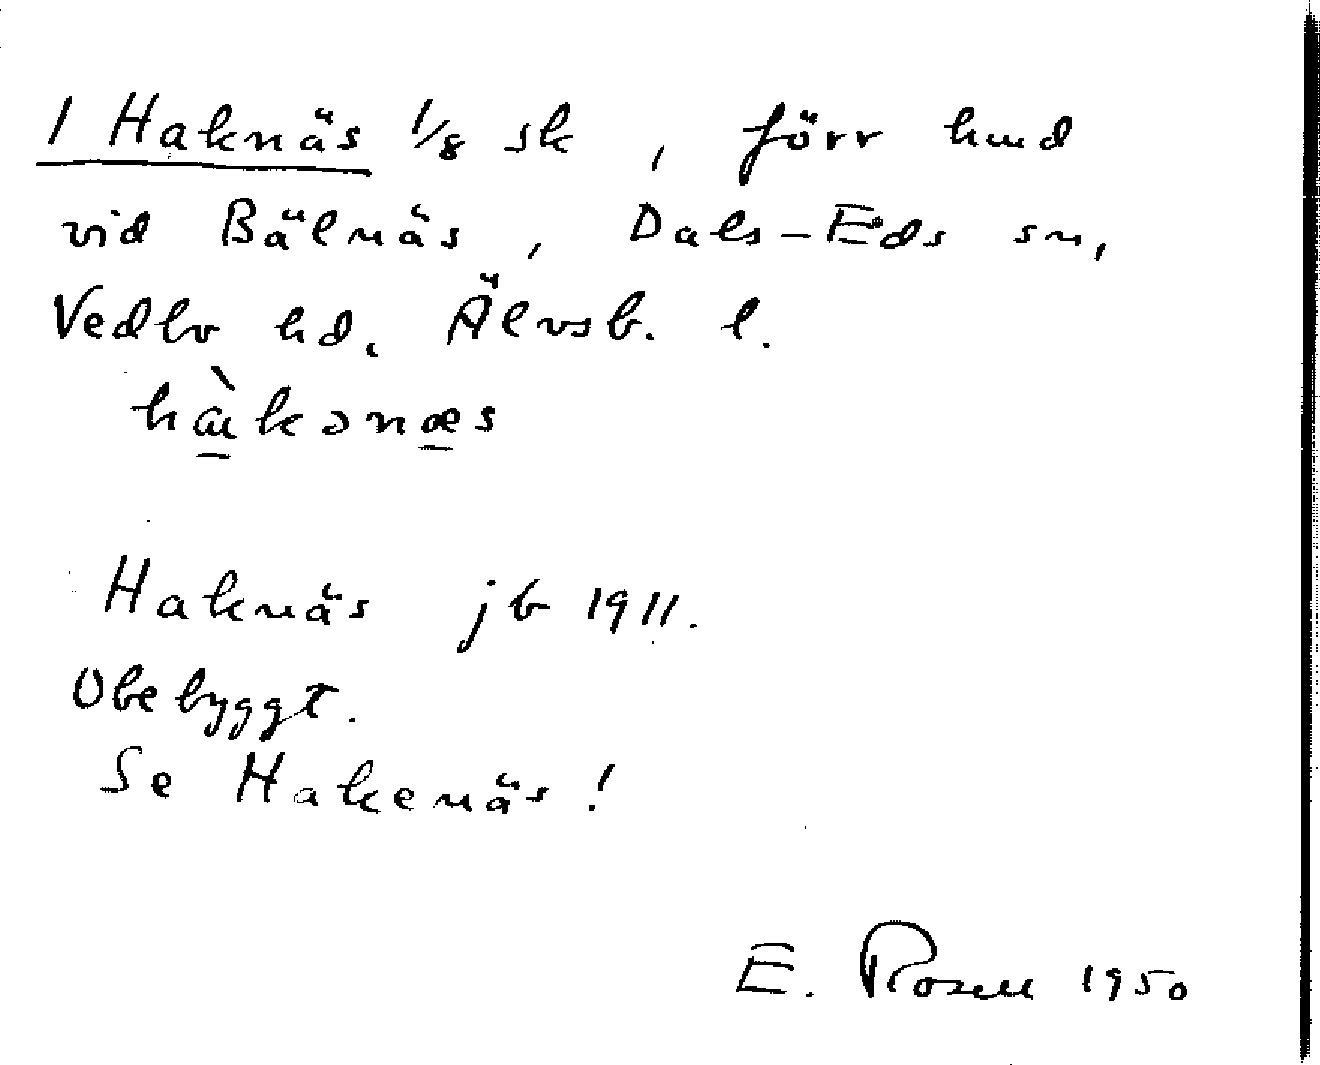 1 Haknäs 1/8 sk , förr hmd
vid Bälnäs , Dals-Eds sn,
Vedbo hd, Älvsb. l.
hàkənæs
Haknäs jb 1911.
Obebyggt.
Se Hakenäs!
E. Rosell 1950